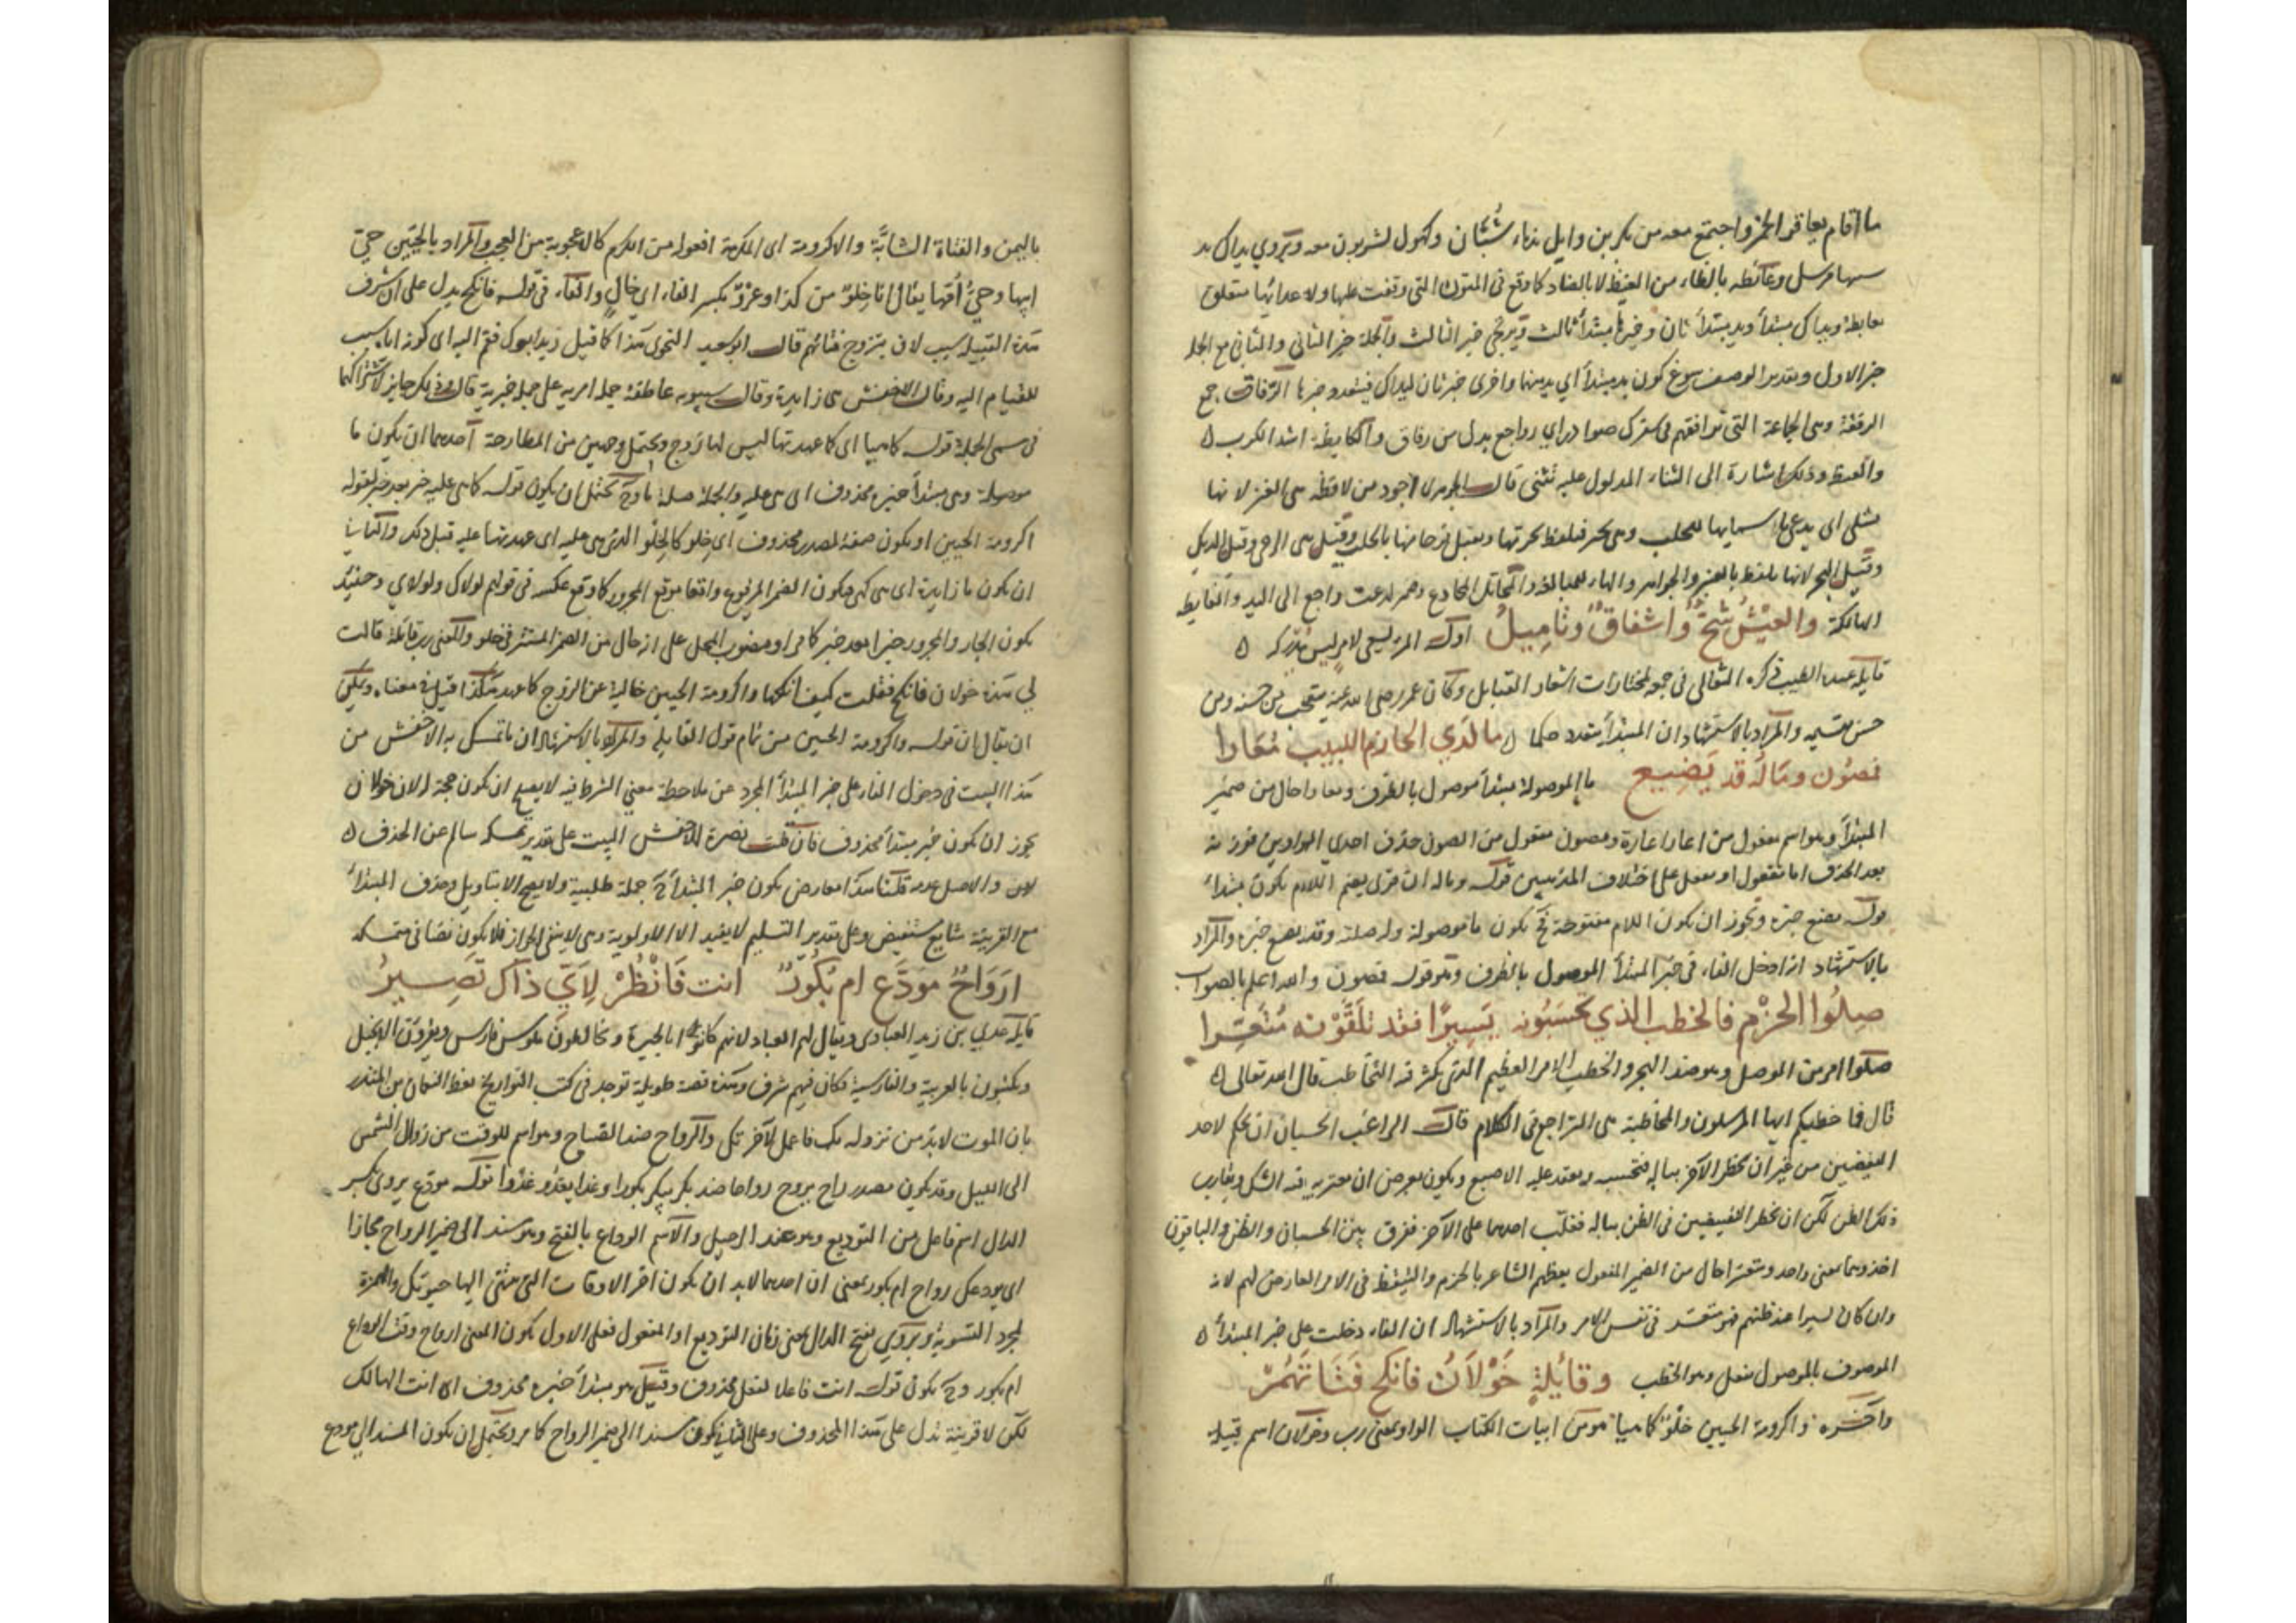 ما اقام يعاقر الخمر واجتمع معه من بكر بن وايل شبان وكهول يشربون معه ويروي يداك يد
سهما مرسل وغائظة بالظاء من الغيظ لا بالضاد كما وقع في المتون التي وقفت عليها ولاعدائها متعلق
بغايظة ويداك مبتدأ ويد مبتدأ ثان وخيرها مبتدأ ثالث ويرتجى خبر الثالث والجملة خبر الثاني والثاني مع الجملة
خبر الاول وتقدير الوصف سوغ كون يد مبتدأ اي يد منهما واخرى خبر ثان ليداك الرفاق جمع
الرفقة وهى الجماعة التي توافقهم في سفرك بدل من رفاق والكايظة اشد الكرب ه
والغيظ وذلك اشارة الى الثناء المدلول عليه تثنى قال الجوهري اجود من لافظة هى العنز لانها
تشلى اى يدعى باسمها للحلب وهى تجتر فتلفظ بجرتها وتقبل فرحا منها بالحلب وقيل هى الرحى وقيل الديك
وقيل البحر لانها يلفظ بالعنبر والجواهر والهاء للمبالغة والخاتل الخادع راجع الى اليد والغايظة
الهالكة والعيش شح واشفاق وتاميل اوله المرء يسعى لامر ليس يدركه ه
قايله عبدة الطبيب ذكره الثعالبى في مجموع مختارات اشعار القبايل وكان عمر رضى الله عنه يتعجب من حسنه ومن
حسن تقسيمه والمراد بالاستشهاد ان المبتدأ متعدد حكما ه ما لدى الحازم اللبيب معارا
فمصون وماله قد يضيع ما الموصولة مبتدأ موصول بالظرف ومعارا حال من ضمير
المبتدأ وهو اسم مفعول من اعار اعارة ومصون مفعول من الصون حذف احدى الواوين فوزنه
بعد الحذف اما مفول او مفعل على اختلاف المذهبين قوله وماله ان قرئ بضم اللام يكون مبتدأ
قوله يضيع خبره ويجوز ان يكون اللام مفتوحة فح يكون ما موصولة وله صلة وقد يضيع خبره والمراد
بالاستشهاد انه ادخل الفاء في خبر المبتدأ الموصول بالظرف وهو قوله فمصون والله اعلم بالصواب
صلوا الحزم فالخطب الذي تحسبونه يسيرا فقد تلقونه متعسرا
صلوا امر من الوصل وهو ضد الهجر والخطب الامر العظيم الذي يكثر فيه التخاطب قال الله تعالى ه
قال فما خطبكم ايها المرسلون والمخاطبة هى التراجع في الكلام قال الراغب الحسبان ان يحكم لاحد
النقيضين من غير ان يخطر الآخر بباله فتحسبه ويعقد عليه الاصبع ويكون بعرض ان يعتريه فيه الشك ويقارب
ذلك الظن لكن ان يخطر النقيضين في الظن بباله فغلب احدهما على الآخر ففرق بين الحسبان والظن والباقون
اخذوهما بمعنى واحد ومتعسرا حال من الضمير المفعول يعظهم الشاعر بالحزم والتيقظ في الامر العارض لهم لانه
وان كان يسيرا عند ظنهم فهو متعسر في نفس الامر والمراد بالاستشهاد ان الفاء دخلت على خبر المبتدأ ه
الموصوف بالموصول بفعل وهو الخطب وقائلة خولان فانكح فتاتهم
وآخره واكرومة الحيين خلو كما هيا هو من ابيات الكتاب الواو بمعنى رب وخولان اسم قبيلة
باليمن والفتاة الشابة والاكرومة اى المكرمة افعولة من الكرم كالاعجوبة من العجب والمراد بالحيين حي
ابيها وحي امها يقال انا خلو من كذا بكسر الفاء اى خال والفاء في قوله فانكح يدل على ان شرف
هذه القبيلة سبب لان يتزوج فتاتهم قال ابو سعيد النحوى هذا كما قيل زيد ابوك فقم اليه اى كونه اباك سبب
للقيام اليه وقال الاخفش هى زايدة وقال سيبويه عاطفة جملة امرية على جملة خبرية قال وذلك جايز لاشتراكهما
في اسم الجملة قوله كما هيا اى كما عهدتها ليس لها زوج ويحتمل وجهين من المطارحة احدهما ان يكون ما
موصولة وهى مبتدأ خبره محذوف اى هى عليه والجملة صلة ما وح يحتمل ان يكون قوله كما هى عليه خبر بعد خبر لقوله
اكرومة الحيين او يكون صفة لمصدر محذوف اى خلو كالخلو الذى هى عليه اى عهدتها عليه قبل ذلك والثانى
ان يكون ما زايدة اى هى كهى فيكون الضمير المرفوع واقعا موقع المجرور كما وقع عكسه في قولهم لولاك ولولاي وحينئذ
يكون الجار والمجرور خبرا بعد خبر كما مر او منصوب المحل على انه حال من الضمير المستتر في خلو والمعنى رب قائلة قالت
لي هذه خولان فانكح فقلت كيف انكحها واكرومة الحيين خالية عن الزوج كما عهد هكذا قيل في معناه ويمكن
ان يقال ان قوله واكرومة الحيين من تمام قول القايلة والمراد بالاستشهاد ان ما تمسك به الاخفش من
هذا البيت في دخول الفاء على خبر المبتدأ المجرد عن ملاحظة معنى الشرط فيه لا يصح ان يكون حجة له لان خولان
يجوز ان يكون خبر مبتدأ محذوف فان قلت نصرة للاخفش البيت على تقدير تمسكه سالم عن الحذف ه
والاصل عدمه قلنا هذا معارض بكون خبر المبتدأ ح جملة طلبية ولا يصح الا بتاويل وحذف المبتدأ
مع القرينة شايع مستفيض وعلى تقدير التسليم لا يفيد الا الاولوية وهى لا ينفى الجواز فلا يكون نصا في متمسكه
ارواح مودع ام بكور انت فانظر لاي ذاك تصير
قايله عدي بن زيد العبادى ويقال لهم العباد لانهم كانوا بالحيرة وتخالطون ملوك فارس ويقرؤن الانجيل
ويكتبون بالعربية والفارسية وكان فيهم شرف وهذه قصة طويلة توجد في كتب التواريخ يعظ النعمان بن المنذر
بان الموت لا بد من نزوله بك فاعمل لآخرتك والرواح ضد الصباح وهو اسم للوقت من زوال الشمس
الى الليل وقد يكون مصدر راح يروح رواحا ضد بكر يبكر بكورا وغدا يغدو غدوا قوله مودع يروى بكسر
الدال اسم فاعل من التوديع وهو عند الرحيل والاسم الوداع بالفتح وهو مسند الى ضمير الرواح مجازا
اى يودعك رواح ام بكور بمعنى ان احدهما لا بد ان يكون اخر الاوقات التي تنتهى اليها حيوتك والهمزة
لمجرد التسوية ويروي بفتح الدال بمعنى زمان التوديع او المفعول فعلى الاول يكون المعنى ارواح وقت الوداع
ام بكور وح يكون قوله انت فاعلا لفعل محذوف وقيل هو مبتدأ خبره محذوف اى انت الهالك
لكن لا قرينة تدل على هذا المحذوف وعلى الثاني يكون مسندا الى ضمير الرواح كما مر ويحتمل ان يكون المسند اليه مودع